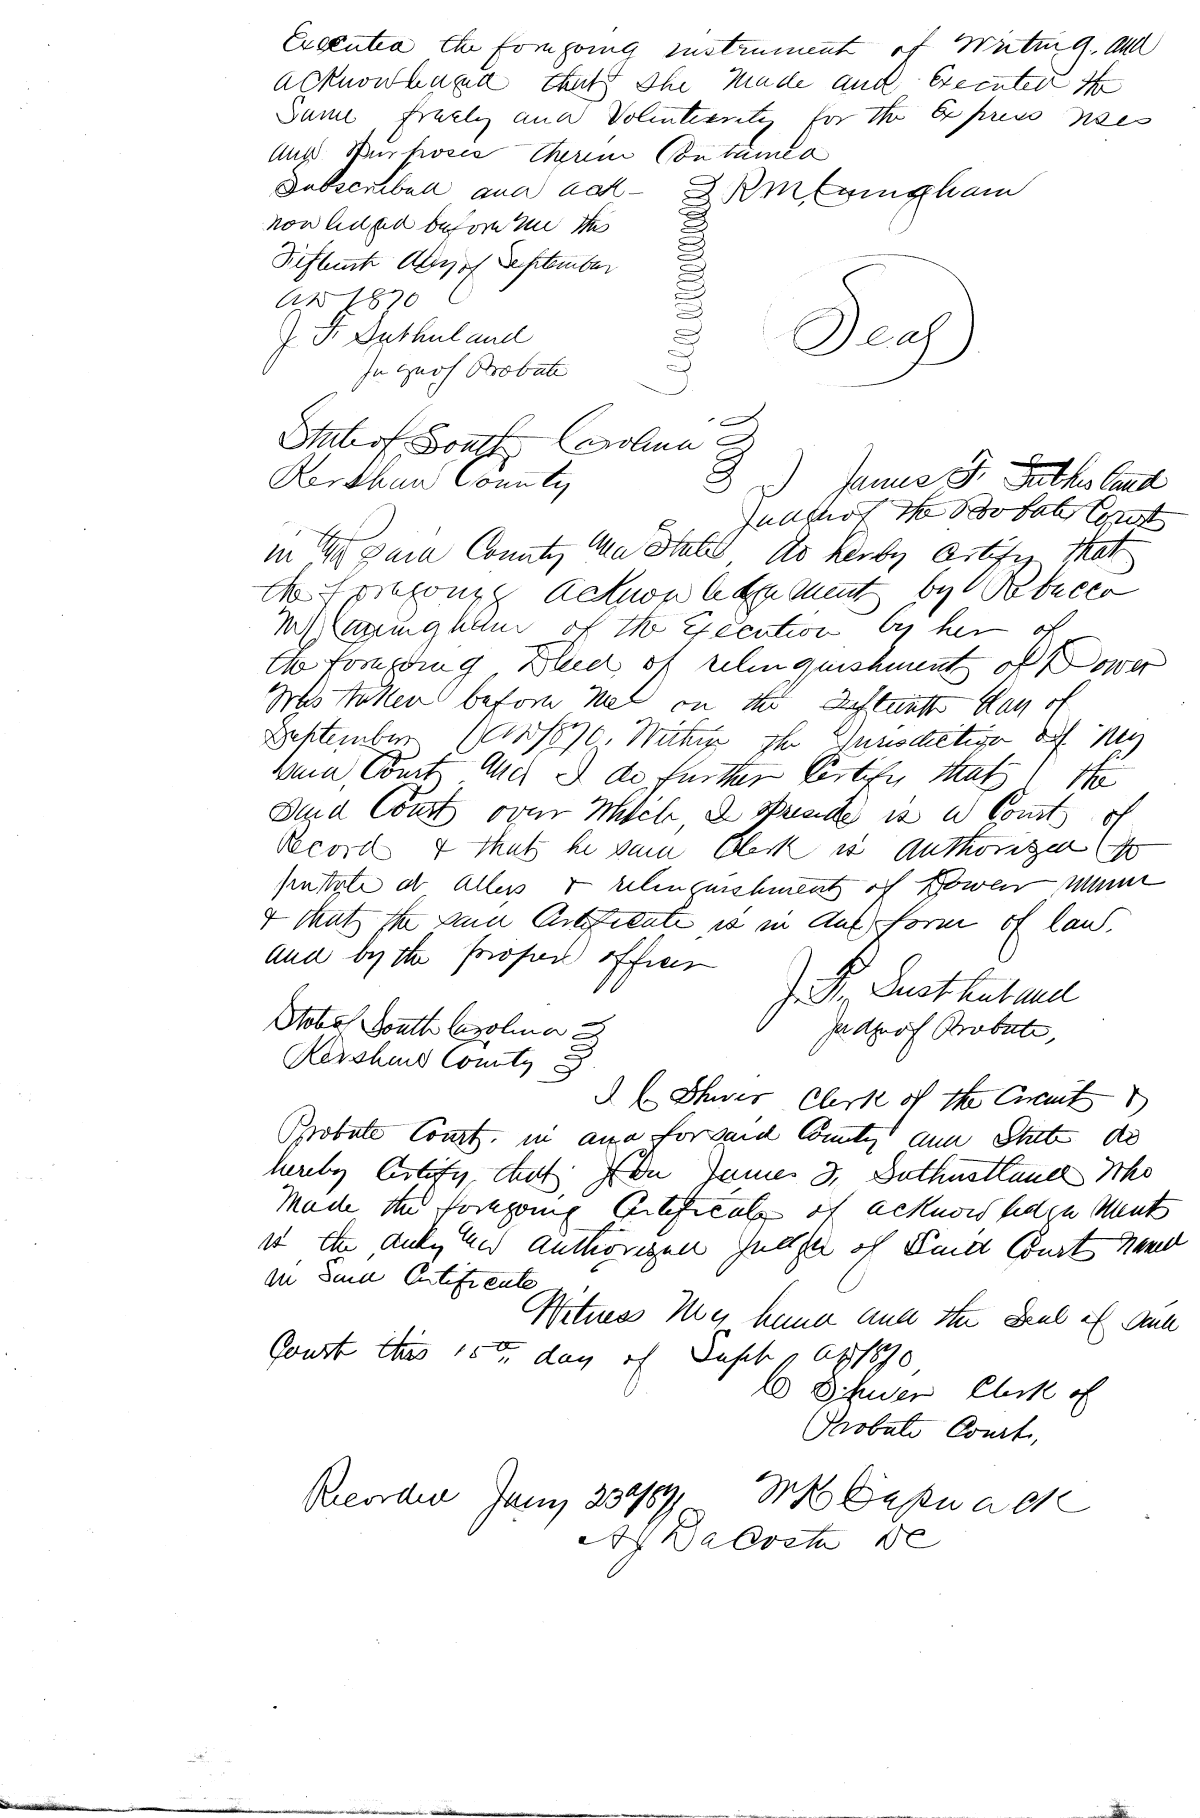 Executed the foregoing instrument of Writing. and
acknowledged that she made and Executed the
Same freely and Voluntarily for the Express uses
and Purposes therein Contained
Subscribed and ack-
nowledged before me this
Fifteenth day of September
AD 1870
J. F. Sutherland
Judge of Probate
R M. Cuningham
Seal
State of South Carolina
Kershaw County
James F. Sutherland
Judge of the Probate Court
in the said County and State, do herby certify that
the foregoing acknowledgement by Rebecca
M Cuningham of the Execution by her of
the foregoing Deed of relinquishment of Dower
was taken before me on the fifteenth day of
September AD 1870. Within the Jurisdiction of my
said Court and I do further Certify that the
said Court over which I preside is a Court of
Record & that he said Clerk is authorized to
& relinquishment of Dower
& that the said Certificate is in due form of law.
and by the proper officer
J. F. Susthuland
Judge of Probate,
State of South Carolina
Kershaw County
I C Shiver Clerk of the Circuit &
Probate Court. in and forsaid County and State do
hereby Certify that Hon James F. Suthustland who
made the foregoing Certificate of acknowledgement
is the duly and authorized Judge of Said Court named
in Said Certificate
Witness My hand and the Seal of said
Court this 15th day of Sept AD 1870
C Shiver Clerk of
Probate Court,
Recorded Jany 23d
A J DaCosta DC